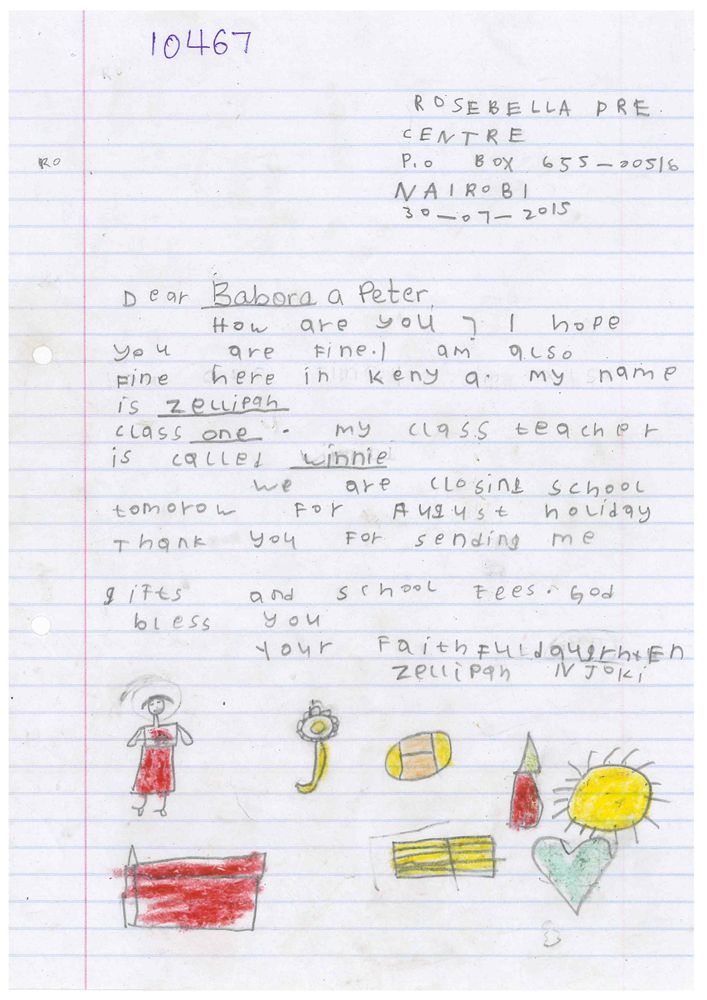 10467
ROSEBELLA DRE.
CENTRE
P.o BOX 655-00516
RO
NAIROBI
30-07-2015
Dear Babora a Peter,
How are you ? I hope
you are Fine. I am also
Fine here in Keny a. my name
is Zellipah
class one. my class teacher
is called Winnie
we are closing school
tomorow For August holiday
Thank you For sending me
gifts and school Fees. God
bless you
your FaithFul daughtEn
Zellipah NJOKI